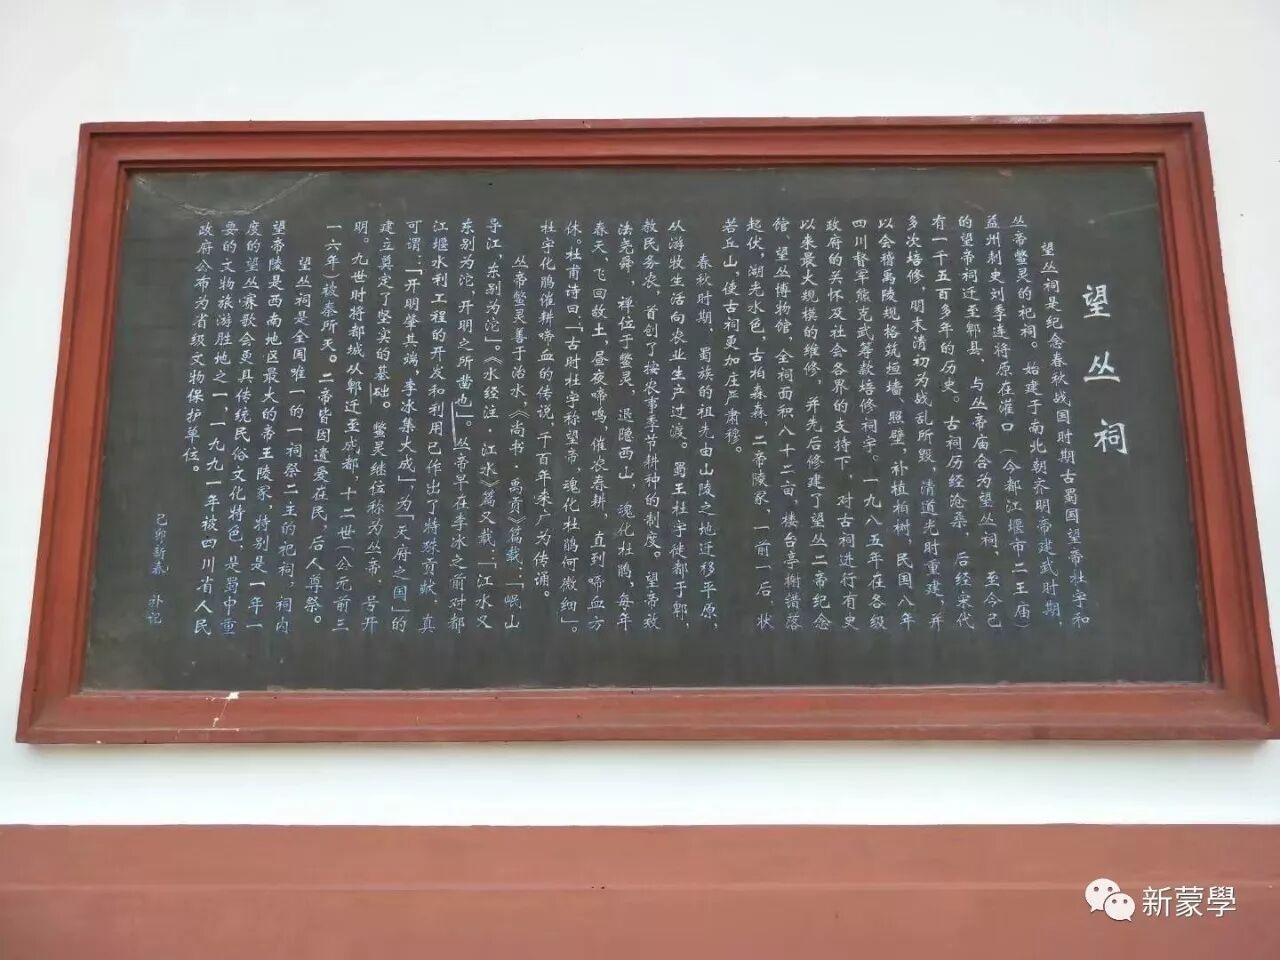 望丛祠
望丛祠是纪念春秋战国时期古蜀国望帝杜宇和
丛帝鳖灵的祀祠。始建于南北朝齐明帝建武时期，
益州刺史刘季连将原在灌口（今都江堰市二王庙）
的望帝祠迁至郫县，与丛帝庙合为望丛祠，至今已
有一千五百多年的历史。古祠历经沧桑，后经宋代，
多次培修，明末清初为战乱所毁，清道光时重建，并
以会稽禹陵规格筑垣墙、照壁，补植柏树，民国八年
四川督军熊克武筹款培修祠宇。一九八五年在各级
政府的关怀及社会各界的支持下，对古祠进行有史
以来最大规模的维修，并先后修建了望丛二帝纪念
馆，望丛博物馆，全祠面积八十二亩，楼台亭榭错落
起伏，湖光水色，古柏森森，二帝陵冢，一前一后，状
若丘山，使古祠更加庄严肃穆。
春秋时期，蜀族的祖先由山陵之地迁移平原，
从游牧生活向农业生产过渡。蜀王杜宇徙都于郫，
教民务农，首创了按农事季节耕种的制度。望帝效
法尧舜，禅位于鳖灵，退隐西山，魂化杜鹃，每年
春天，飞回故土，昼夜啼鸣，催农春耕，直到啼血方
休。杜甫诗曰「古时杜宇称望帝，魂化杜鹃何微细」。
杜宇化鹃催耕啼血的传说，千百年来广为传诵。
丛帝鳖灵善于治水，《尚书·禹贡》篇载：「岷山
导江，东别为沱」。《水经注 江水》篇又载：「江水又
东别为沱，开明之所凿也」。丛帝早在李冰之前对都
江堰水利工程的开发和利用已作出了特殊贡献，真
可谓：「开明肇其端，李冰集大成」，为「天府之国」的
建立奠定了坚实的基础。鳖灵继位称为丛帝，号开
明。九世时将都城从郫迁至成都，十二世（公元前三
一六年）被秦所灭。二帝皆因遗爱在民，后人尊祭。
望丛祠是全国唯一的一祠祭二主的祀祠，祠内
望帝陵是西南地区最大的帝王陵冢，特别是一年一
度的望丛赛歌会更具传统民俗文化特色，是蜀中重
要的文物旅游胜地之一，一九九一年被四川省人民
政府公布为省级文物保护单位。
己卯新春 补记
新蒙學